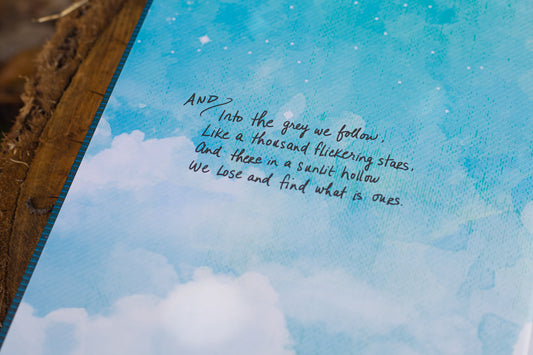 AND
Into the grey we follow,
Like a thousand flickering stars,
And there in a sunlit hollow
We Lose and find what is ours.